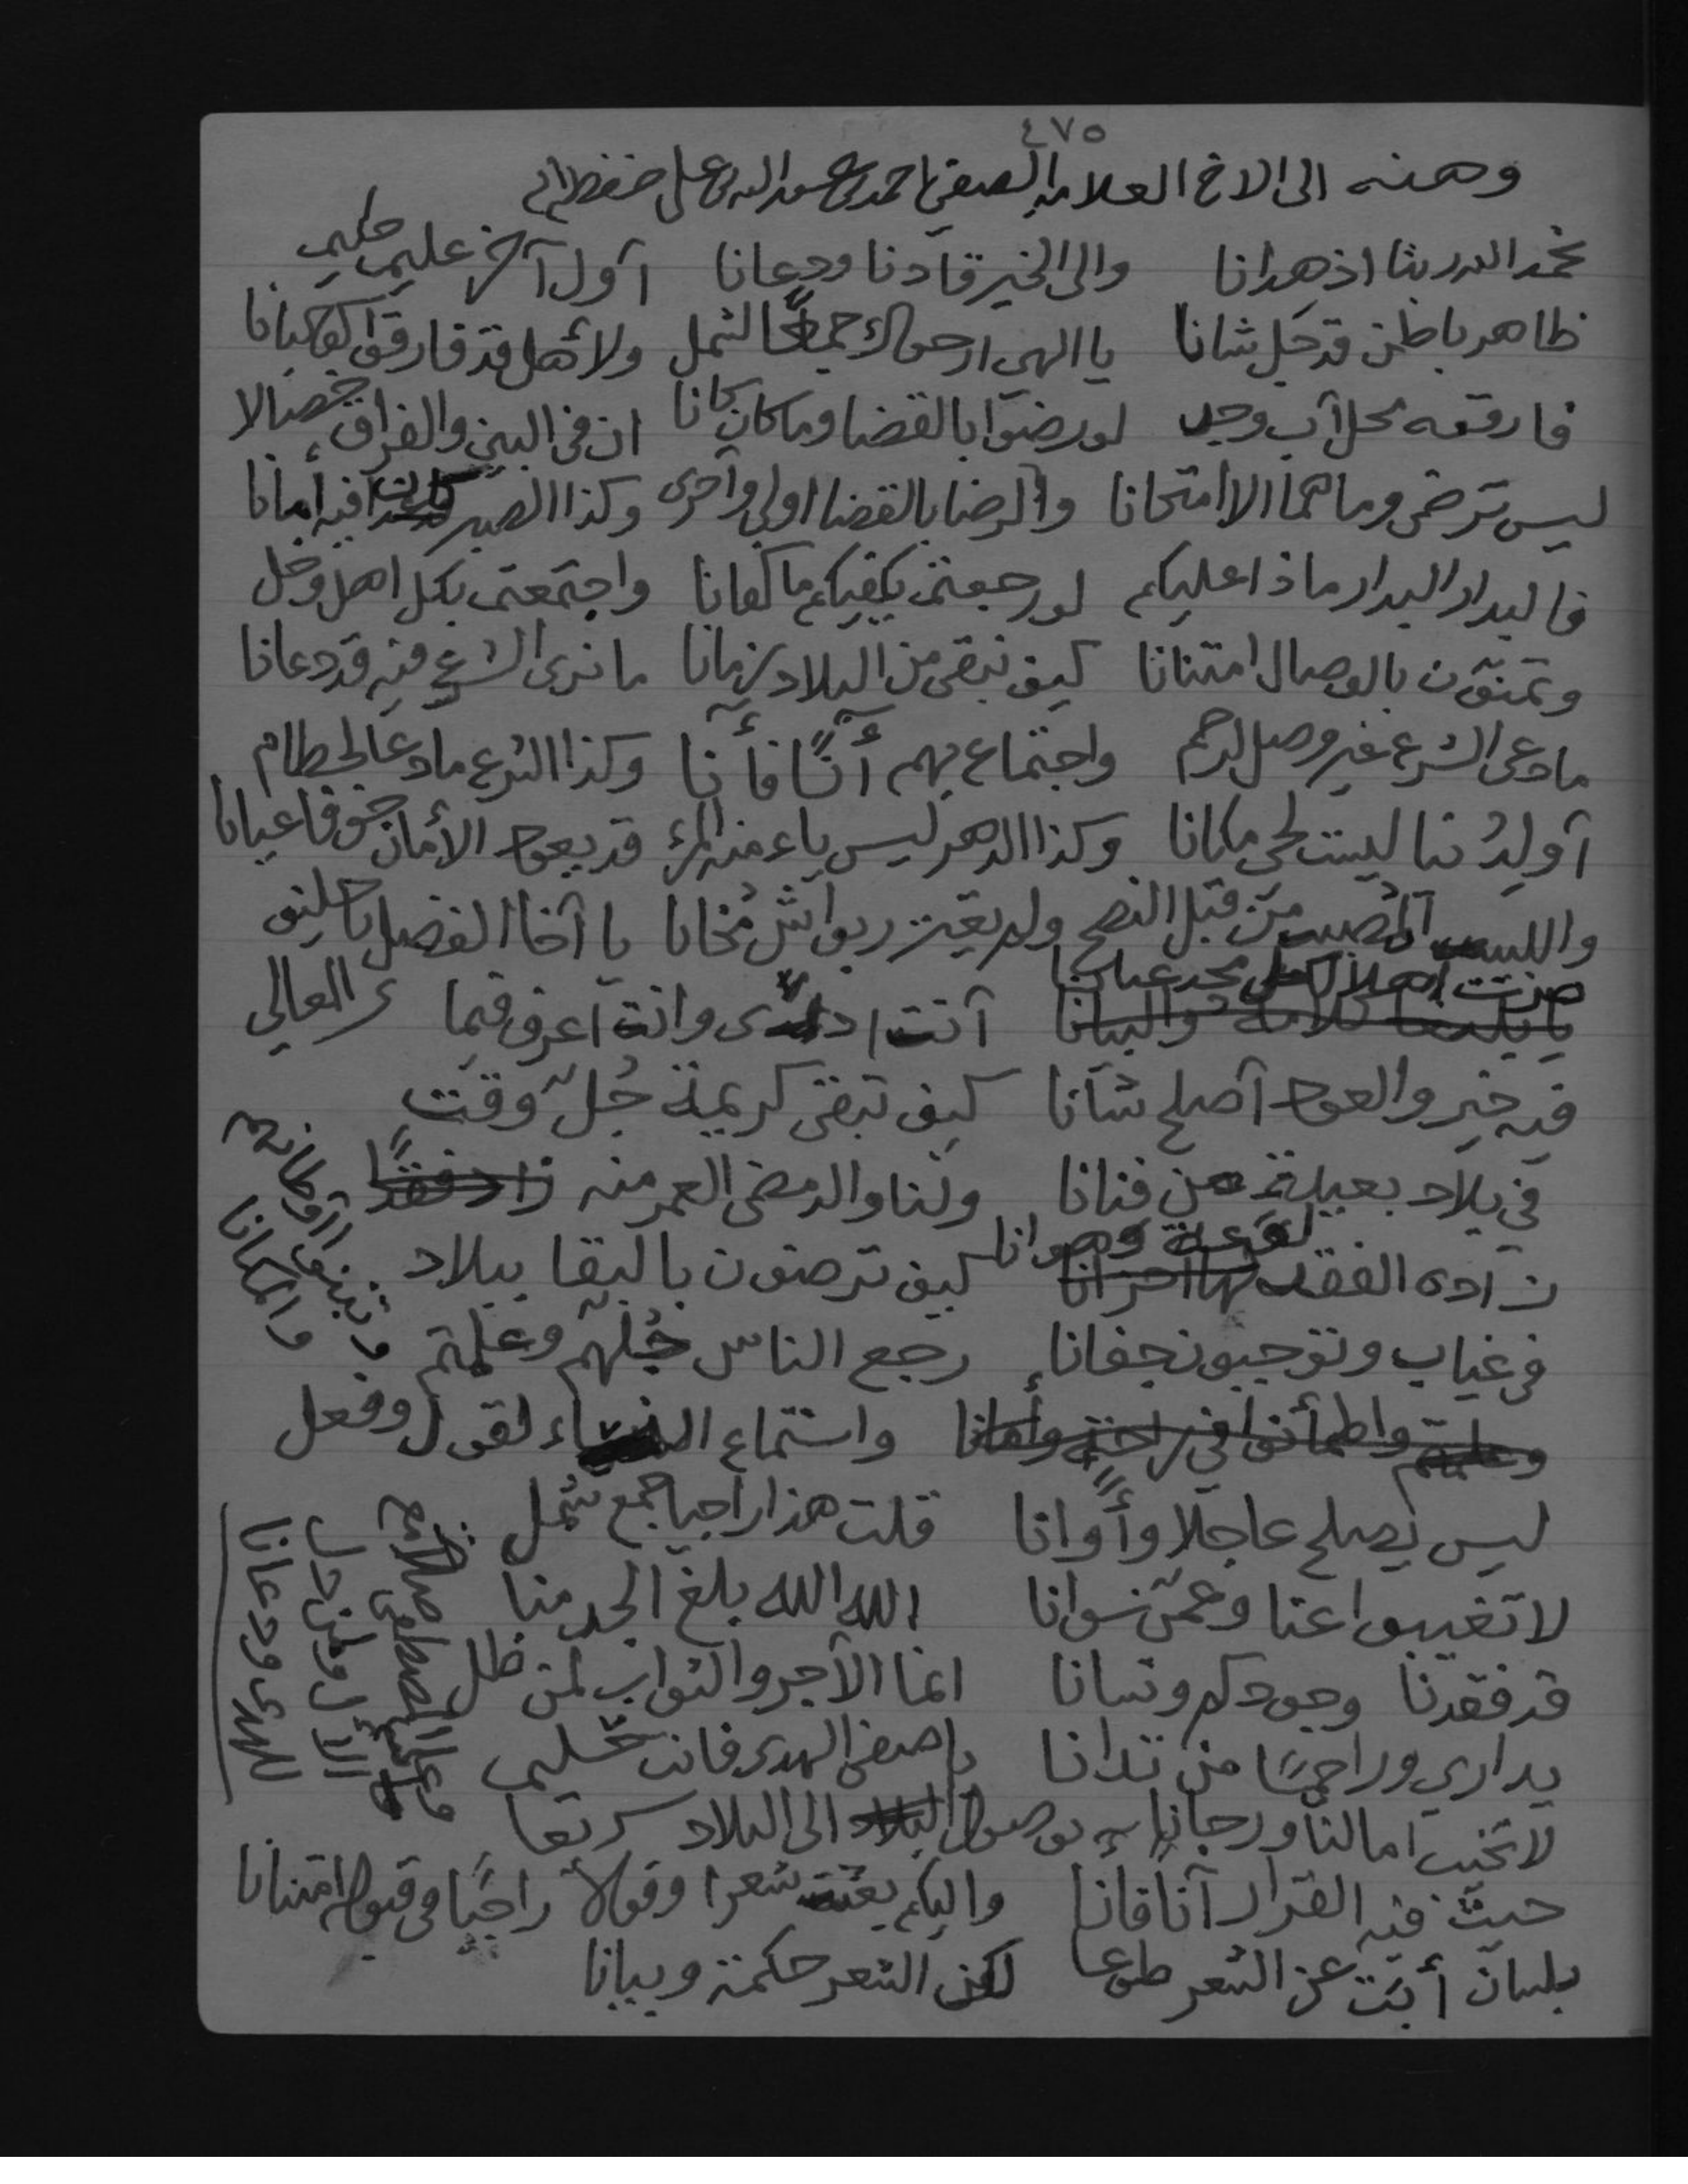 ٤٧٥
وهنه الى الاخ العلامة الصفي احمد بن عبدالله بن علي حفظه الله
نحمد الله ربنا اذ هدانا والى الخير قادنا ودعانا أول آخر عليم حكيم
ظاهر باطن قد جل شانا يا الهي ارحم جمعاً لشمل ولأهل قد فارقوا
فارقعه محل أب وجد لو رضوا بالقضا وما كان كانا ان في البين والفراق خصالا
ليس ترضى وما هما الا امتحانا والرضا بالقضا اولى وأحرى وكذا الصبر فيه أمانا
فالبدار البدار ماذا عليكم لو رجعتم يكفيكم ما كفانا واجتمعتم بكل اهل وخل
وتمنون بالوصال امتنانا كيف نبقى من البلاد زمانا ما نرى الشرع فيه قد دعانا
ما دعى الشرع غير وصل لرحم واجتماع بهم أناً فأنا وكذا الشرع ما دعا لحطام
أو لدنا ليست لحي مكانا وكذا الدهر ليس ياءمنه المرء قد يعود الأمان خوفا عيانا
واللبيب المصيب من قبل النصح ولم يغتر يا أخا الفضل يا حليف
أنت ادرى وانت اعرف فيما ى المعالي
فيه خير والعود أصلح شأنا كيف تبقى كريمة جُلّ وقت
في بلاد بعيدة عن فنانا ولنا والد مضى العمر منه زاد فقداً
زاده الفقد لوعة وهوانا كيف ترضون بالبقا ببلاد
في غياب وتوجبون جفانا رجع الناس جُلّهم وعلمتم
وعلمتم واطمأنوا في راحة وأمانا واستماع النساء لقول وفعل
ليس يصلح عاجلا وأوانا قلت هذا راجيا جمع شمل
لا تغيبوا عنا وعمن سوانا الله الله بلغ الجهد منا
قد فقدنا وجودكم ونسانا انما الأجر والثواب لمن ظل
يداري وراحماً من تدانا يا صفي الهدى فانت حليم
لا تخيب امالنا ورجانا بوصول الى البلاد سريعا
حيث فيه القرار آنا فانا واليكم بعثت شعرا وقولاً راجيًا في قبوله امتنانا
بلسان أبت عن الشعر طوعا لكن الشعر حكمة وبيانا
والمكانا
وعلى المصطفى صلاة
الآل ومن
للهدى ودعانا